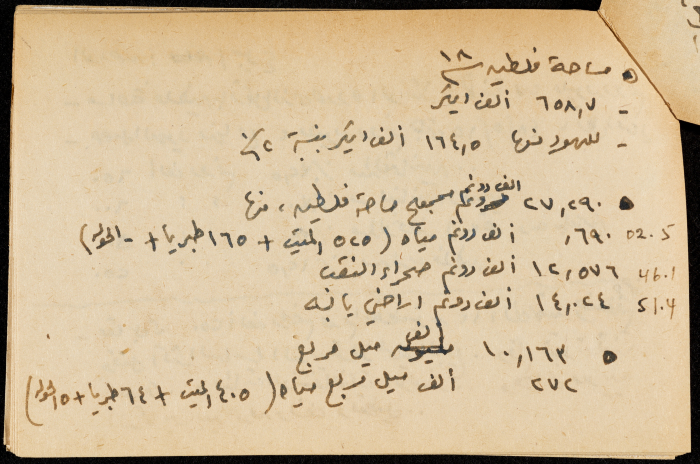 ● مساحة فلسطين ١٨
- ٦٥٨,٧ ألف ايكر
- لليهود منها ١٦٤,٥ ألف ايكر بنسبة
● ٢٧,٢٩٠ الف دونم مجموع مساحة فلسطين، منها
02.5 ,٦٩٠ ألف دونم مياه (٥٢٥ الميت + ١٦٥ طبريا + - الحوله)
46.1 ١٢,٥٧٦ ألف دونم صحراء النقب
51.4 ١٤,٠٢٤ ألف دونم اراضي يابسه
● ١٠,١٦٣ ألف ميل مربع
٢٧٢ ألف ميل مربع مياه (٤٠٥ الميت + ٦٤ طبريا + ٥ الحوله)